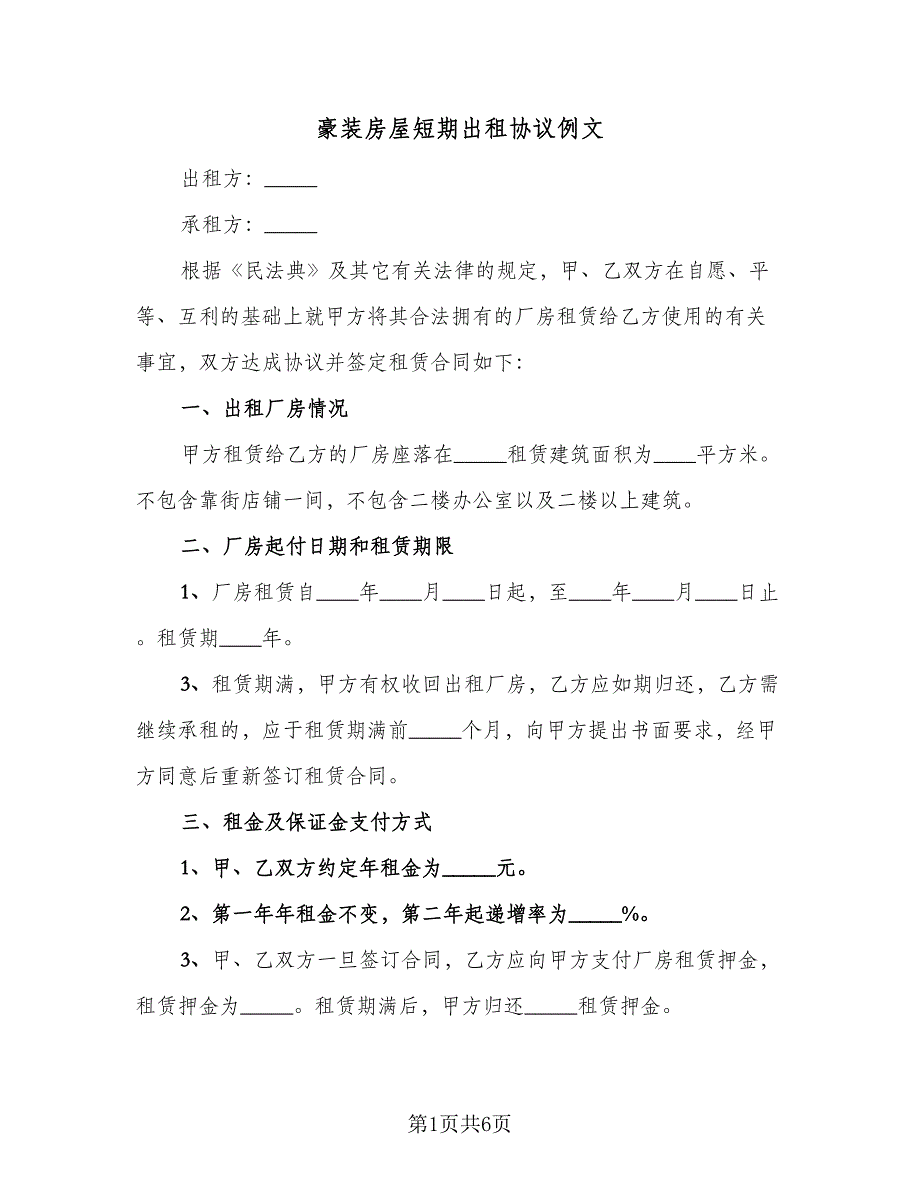 豪装房屋短期出租协议例文
出租方：_____
承租方：_____
根据《民法典》及其它有关法律的规定，甲、乙双方在自愿、平
等、互利的基础上就甲方将其合法拥有的厂房租赁给乙方使用的有关
事宜，双方达成协议并签定租赁合同如下：
一、出租厂房情况
甲方租赁给乙方的厂房座落在_____租赁建筑面积为____平方米。
不包含靠街店铺一间，不包含二楼办公室以及二楼以上建筑。
二、厂房起付日期和租赁期限
1、厂房租赁自____年____月____日起，至____年____月____日止
。租赁期____年。
3、租赁期满，甲方有权收回出租厂房，乙方应如期归还，乙方需
继续承租的，应于租赁期满前_____个月，向甲方提出书面要求，经甲
方同意后重新签订租赁合同。
三、租金及保证金支付方式
1、甲、乙双方约定年租金为_____元。
2、第一年年租金不变，第二年起递增率为_____%。
3、甲、乙双方一旦签订合同，乙方应向甲方支付厂房租赁押金，
租赁押金为_____。租赁期满后，甲方归还_____租赁押金。
第1页共6页